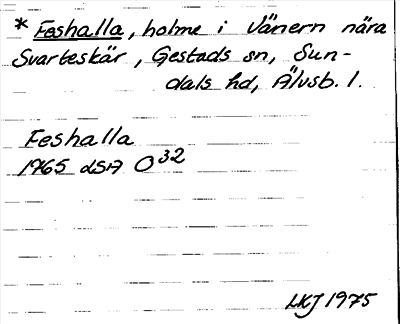 * Feshalla, holme i Vänern nära
Svarteskär, Gestads sn, Sun-
dals hd, Älvsb. l.
Feshalla
1965 dSA O32
LKJ 1975